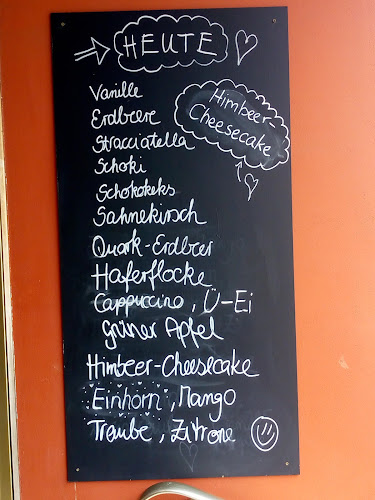 HEUTE
Vanille
Erdbeere
Stracciatella
Schoki
Schokokeks
Sahnekirsch
Quark-Erdbeer
Haferflocke
Cappuccino, Ü-Ei
Grüner Apfel
Himbeer-Cheesecake
Einhorn, Mango
Traube, Zitrone
Himbeer-
Cheesecake